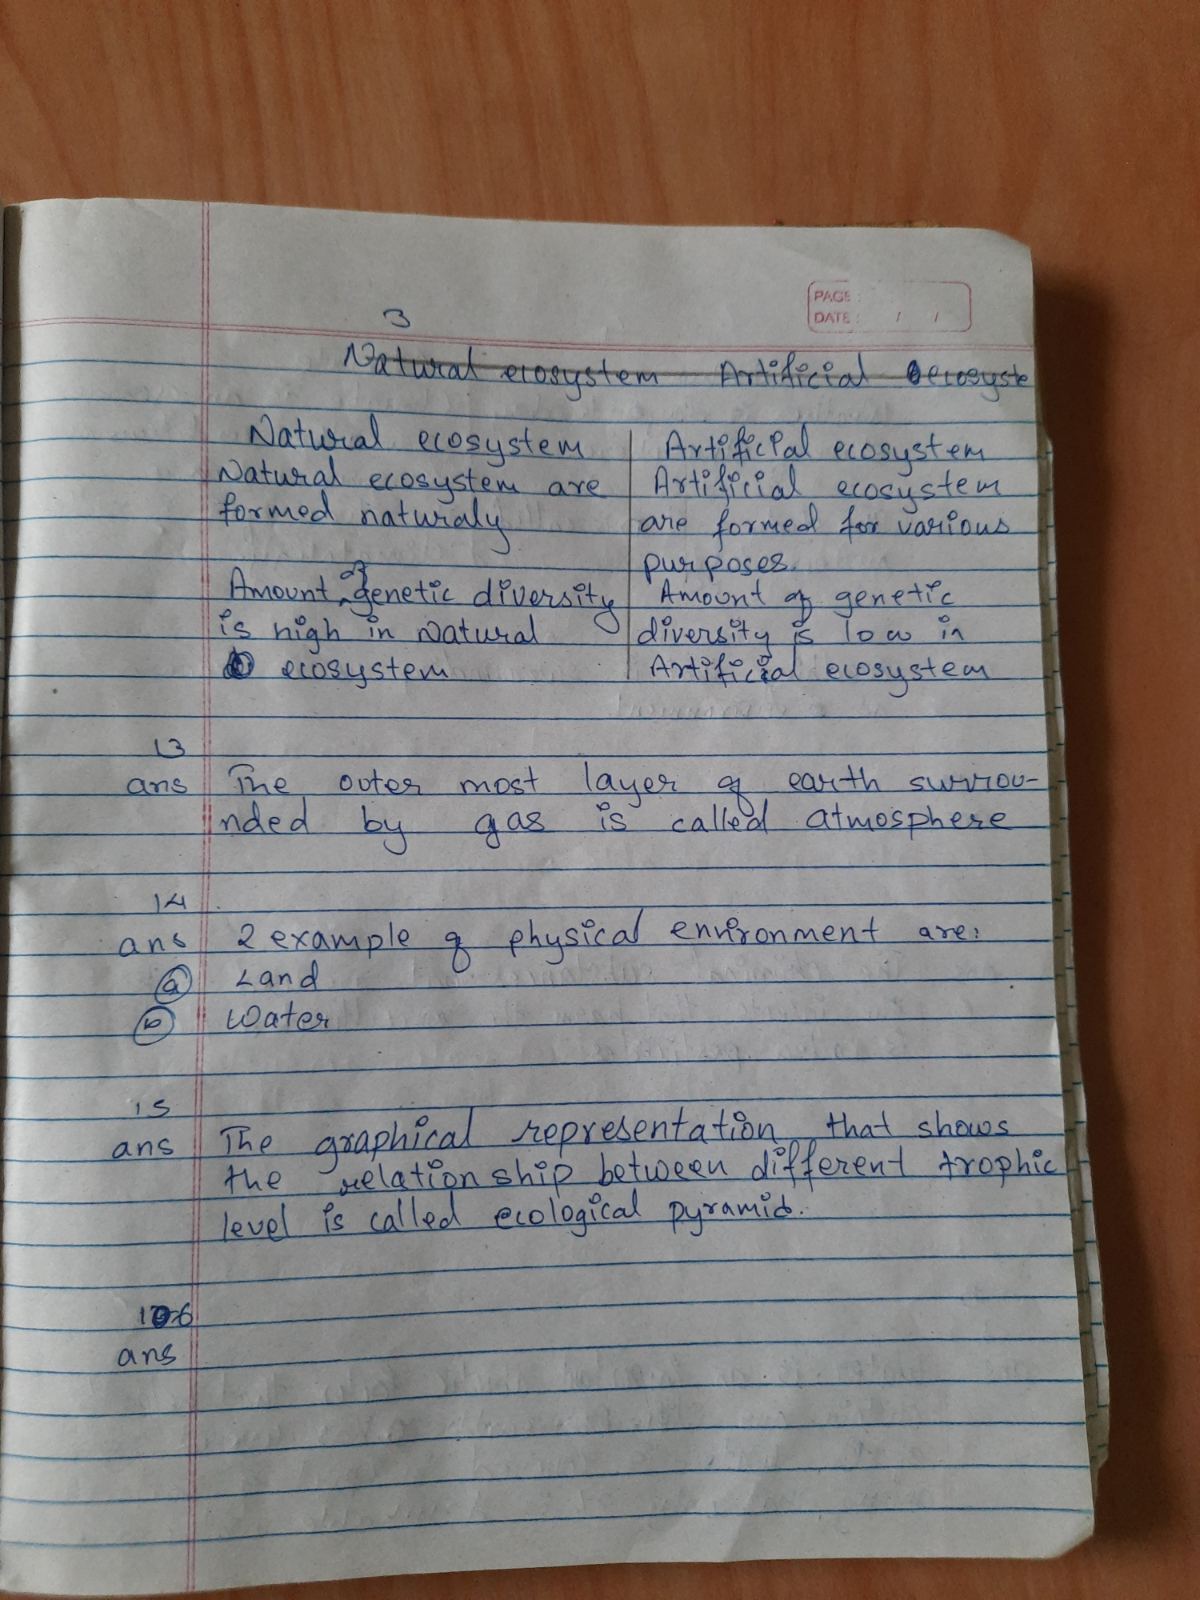 PAGE:
DATE: / /
3
Natural ecosystem Artificial ecosyste
Natural ecosystem Artificial ecosystem
Natural ecosystem are Artificial ecosystem
formed naturaly are formed for various
purposes.
Amount of genetic diversity Amount of genetic
is high in Natural diversity is low in
ecosystem Artificial ecosystem
13
ans The outer most layer of earth surrou-
nded by gas is called atmosphere
14
ans 2 example of physical environment are:
a Land
b Water
15
ans The graphical representation that shows
the relationship between different trophic
level is called ecological pyramid.
ans